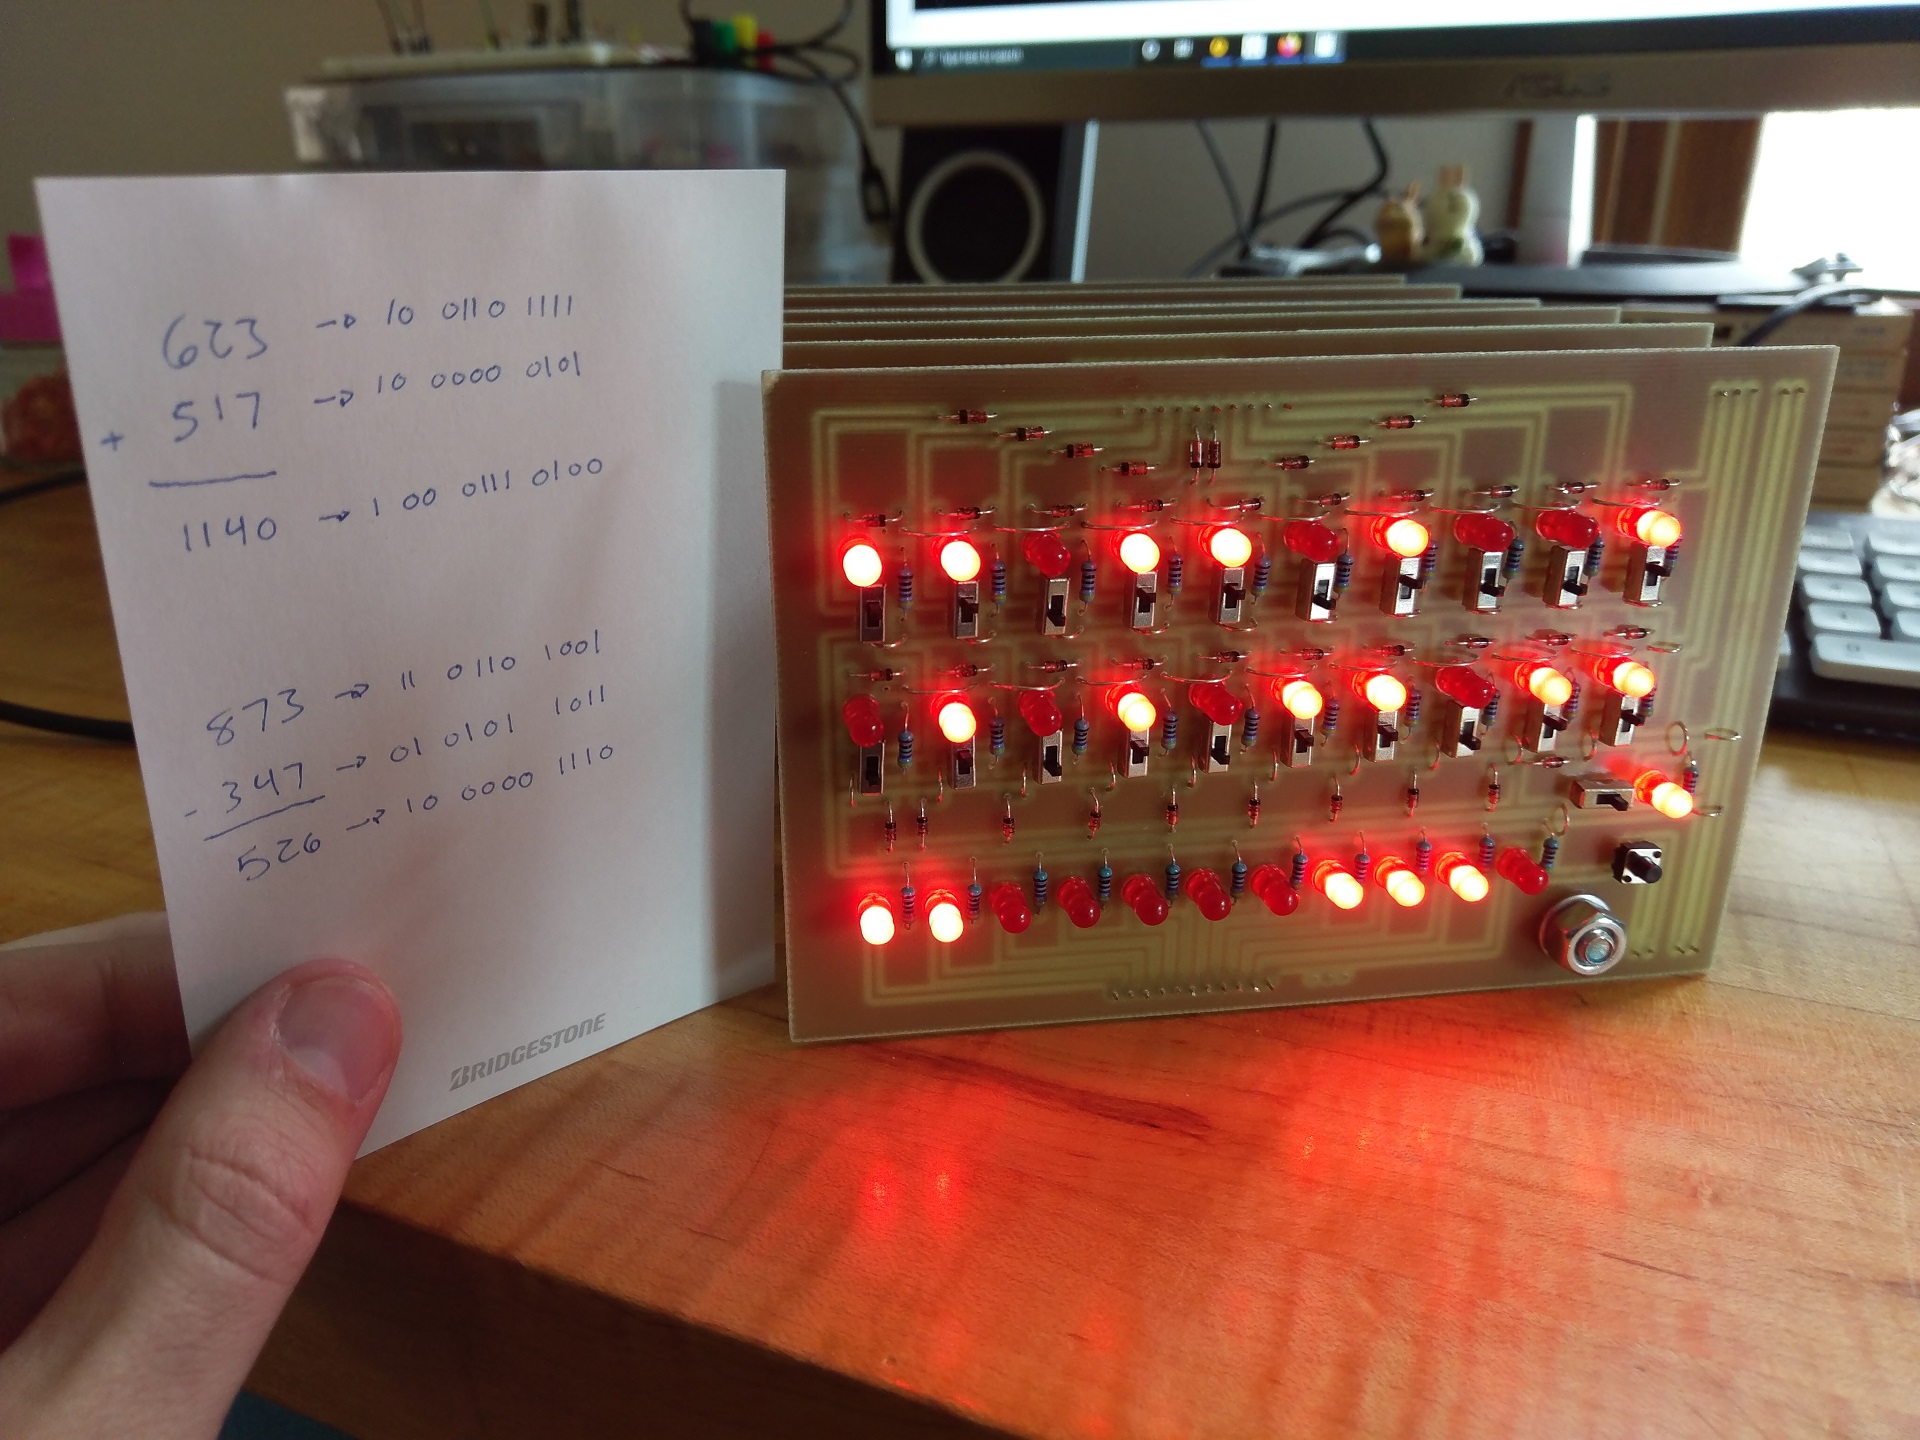 623 → 10 0110 1111
+ 517 → 10 0000 0101
1140 → 1 00 0111 0100
873 → 11 0110 1001
- 347 → 01 0101 1011
526 → 10 0000 1110
BRIDGESTONE